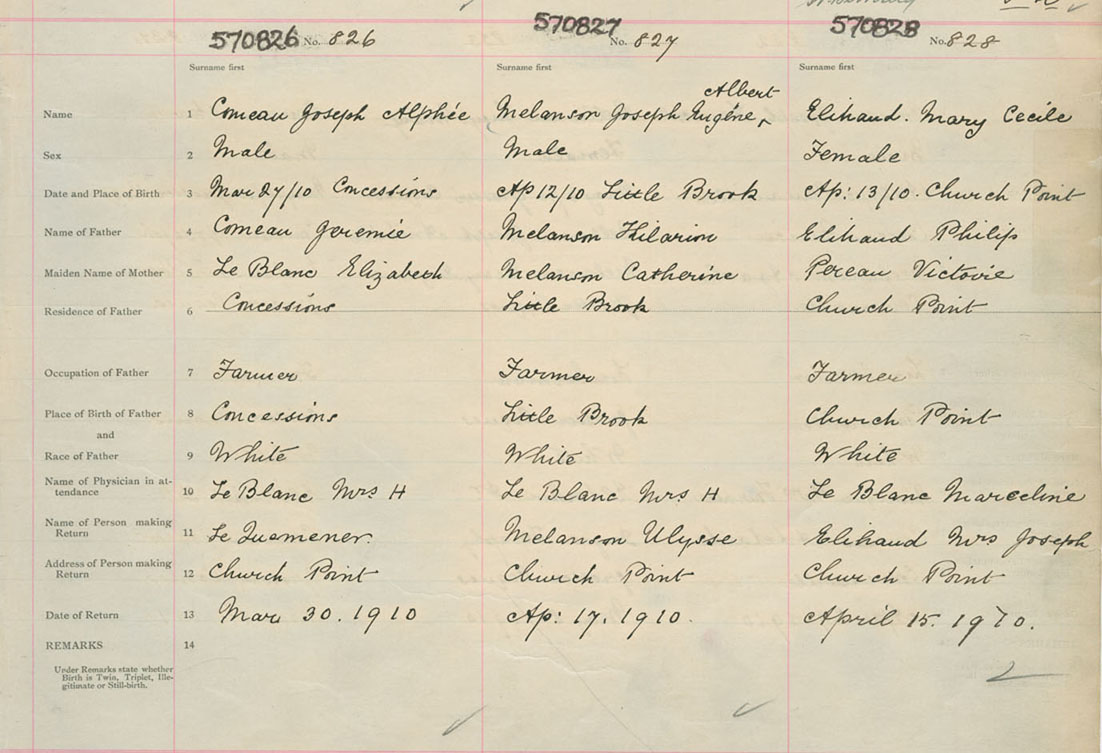 570826 No. 826 570827 No. 827 570828 No. 828
Surname first Surname first Surname first
Albert
Name 1 Comeau Joseph Alphée Melanson Joseph Eugêne, Elihaud. Mary Cecile
Sex 2 Male Male Female
Date and Place of Birth 3 Mar 27/10 Concessions Ap 12/10 Little Brook Ap: 13/10. Church Point
Name of Father 4 Comeau Geremie Melanson Hilarion Elihaud Philip
Maiden Name of Mother 5 Le Blanc Elizabeth Melanson Catherine Pereau Victorie
Residence of Father 6 Concessions Little Brook Church Point
Occupation of Father 7 Farmer Farmer Farmer
Place of Birth of Father 8 Concessions Little Brook Church Point
and
Race of Father 9 White White White
Name of Physician in at-
tendance 10 Le Blanc Mrs H Le Blanc Mrs H Le Blanc Marceline
Name of Person making
Return 11 Le Quemener. Melanson Ulysse Elihaud Mrs Joseph
Address of Person making
Return 12 Church Point Church Point Church Point
Date of Return 13 Mar 30. 1910 Ap: 17. 1910. April 15. 1910.
REMARKS 14
Under Remarks state whether
Birth is Twin, Triplet, Ille-
gitimate or Still-birth.